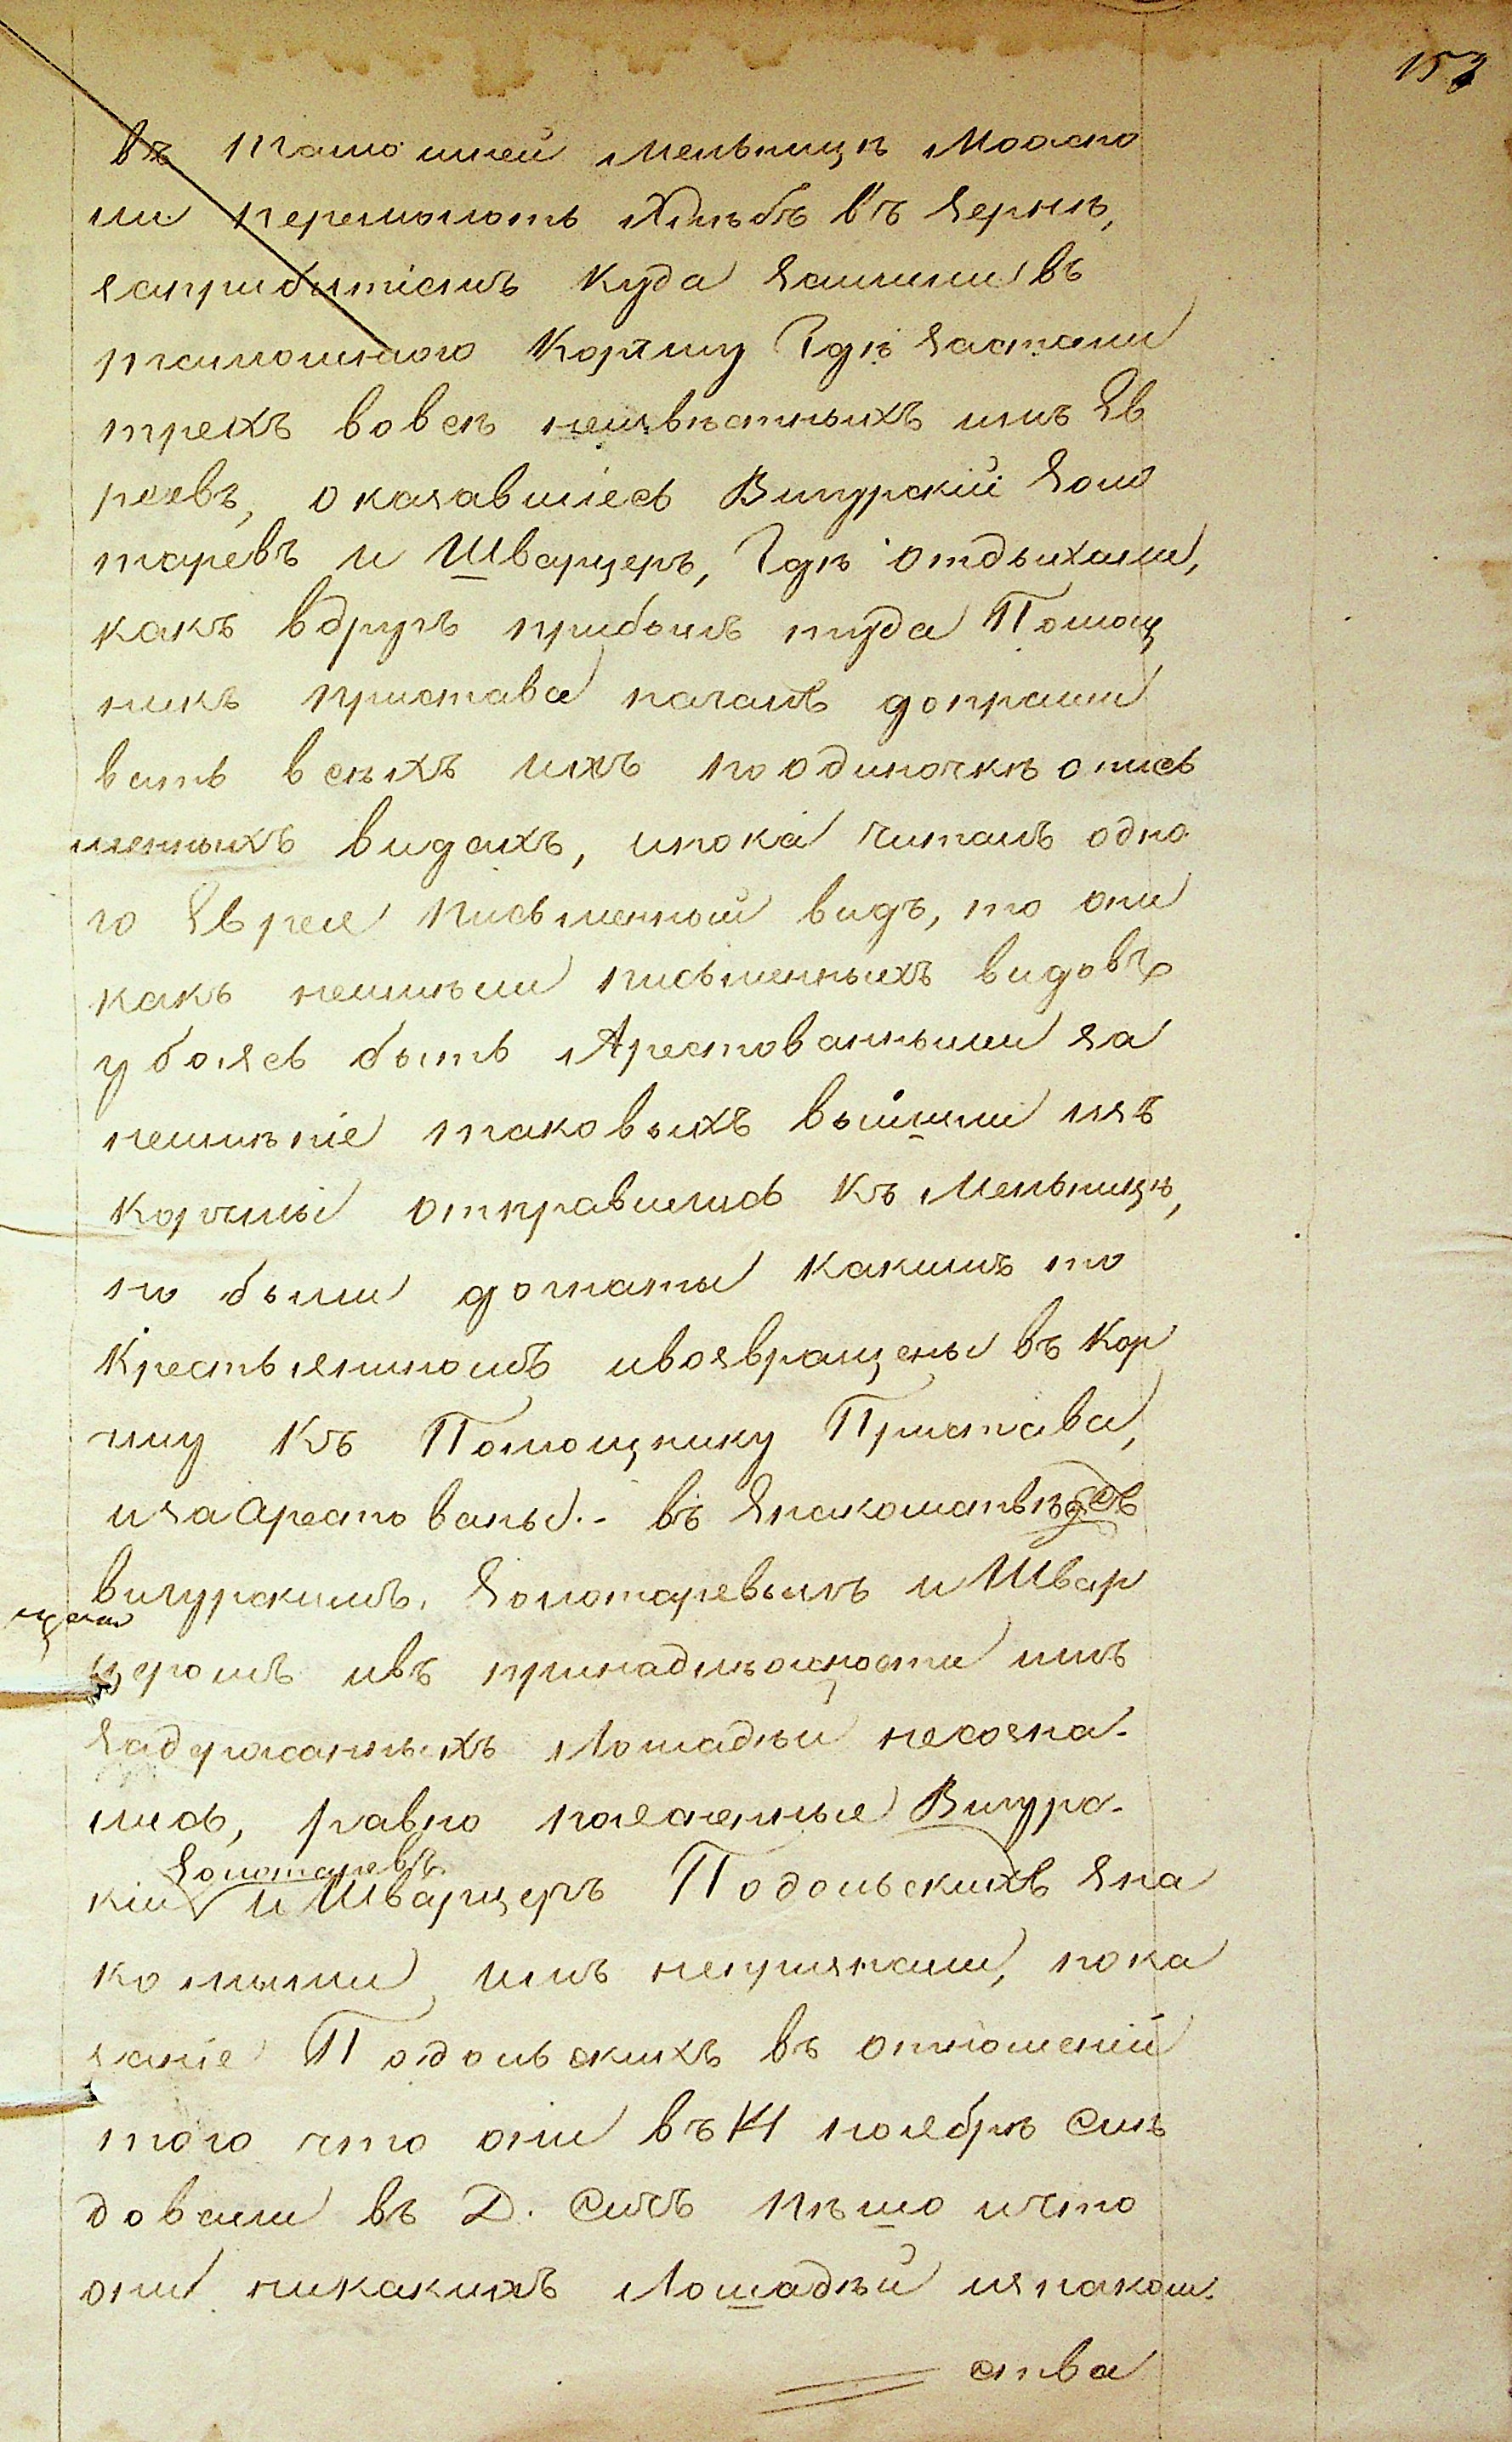 153
въ тамошней мельницѣ Можно
ли перемолоть Хлѣбъ въ Зернѣ,
заприбитіемъ куда Зашли въ
тамошнюю Корчму Гдѣ Застали
трехъ вовсѣ неизвѣстныхъ имъ Ев
реевъ, оказавшіесь Вигурскій Золо
таревъ и Шварцеръ, Гдѣ отдыхали,
какъ вдругъ прибылъ туда Помощ
никъ пристава началъ допраши
вать всѣхъ ихъ поодиночкѣ опись
менныхъ видахъ, ипока читалъ одно
го Еврея письменный видъ, то они
какъ неимѣли письменныхъ видовъ
убоясь быть Арестованными за
неимѣніе таковыхъ вышли изъ
корчмы отправились къ Мельницѣ,
но были догнаты какимъ то
Крестьяниномъ ивозвращены въ Кор
чму Къ Помощнику Пристава,
изаарестованы.- въ Знакомствѣ съ
Вигурскимъ, Золотаревымъ и Швар
церомъ ивъ принадлѣжности имъ
Задержанныхъ Лошадѣй несозна-
лись, равно поясненные Вигурс-
Золотаревъ
кій и Шварцеръ Подольскихъ Зна
комыми имъ непризнали, пока
заніе Подольскихъ въ отношеніи
того что они въ 14 ноябрѣ слѣ
довали въ Д. Сичъ пѣшо ичто
они никакихъ Лошадѣй изнаком-
ства